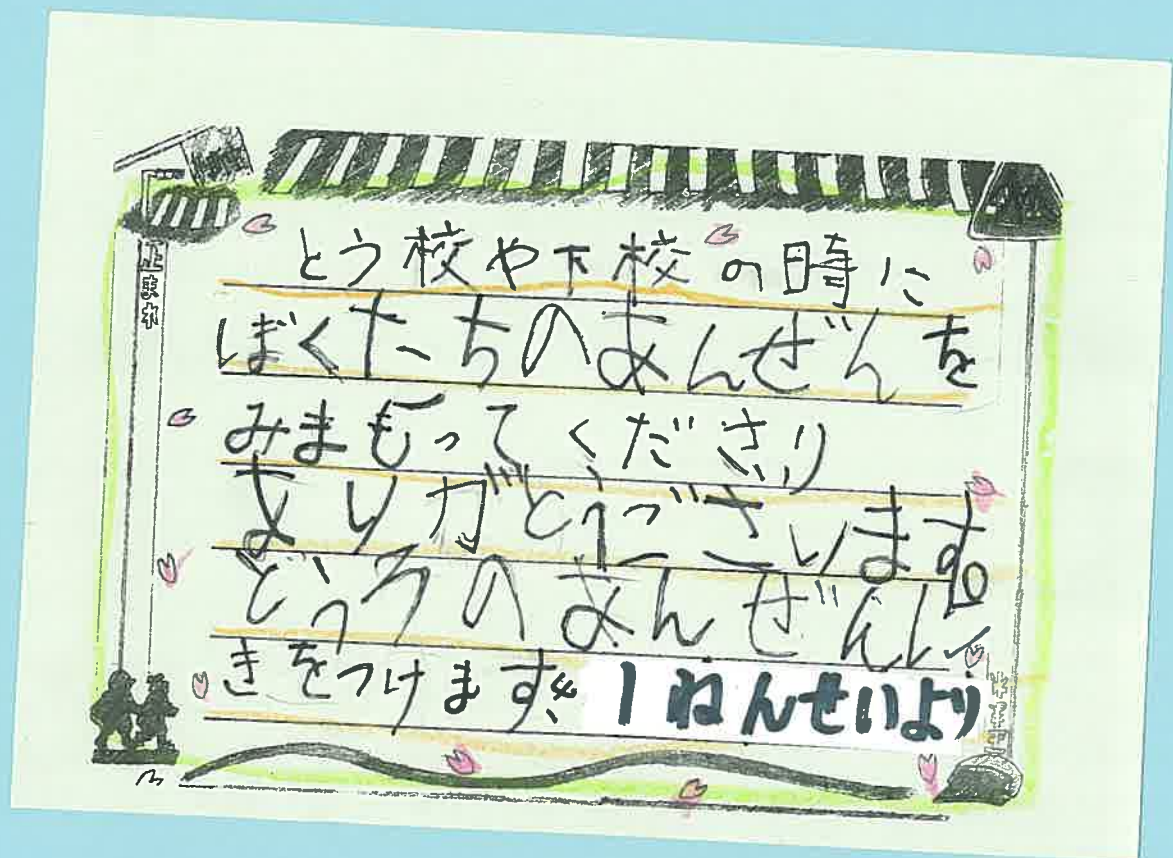 止まれ
とう校や下校の時に
ぼくたちのあんぜんを
みまもってくださり
ありがとうございます。
どうろのあんぜんに
きをつけます。
1ねんせいより